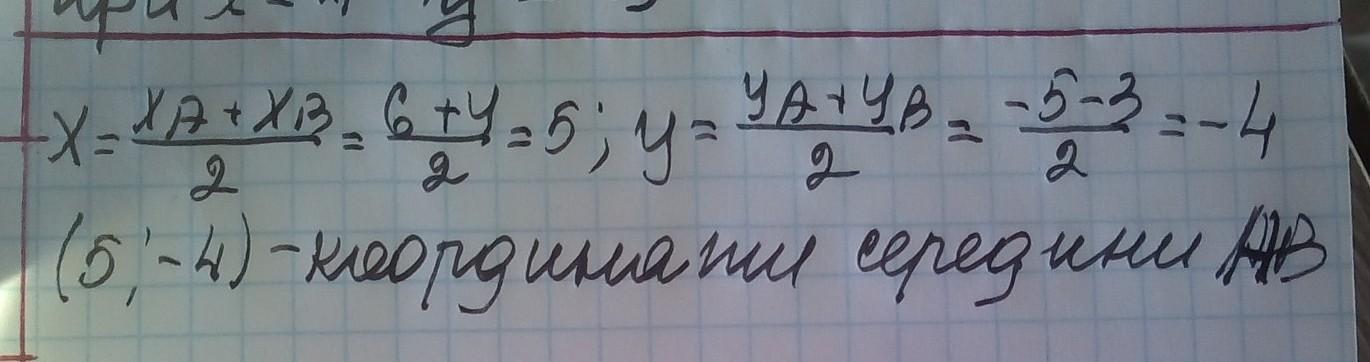 x = (xA + xB)/2 = (6 + 4)/2 = 5; y = (yA + yB)/2 = (-5 - 3)/2 = -4
(5; -4) - координати середини АВ